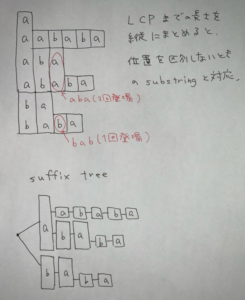 a
a a b a b a
a b a
a b a b a
b a
b a b a
LCPまでの長さを
縦にまとめると,
位置を区別しないとき
の substringと対応.
aba(2回登場)
bab(1回登場)
suffix tree
a
a b a b a
b a
b a
b a
b a